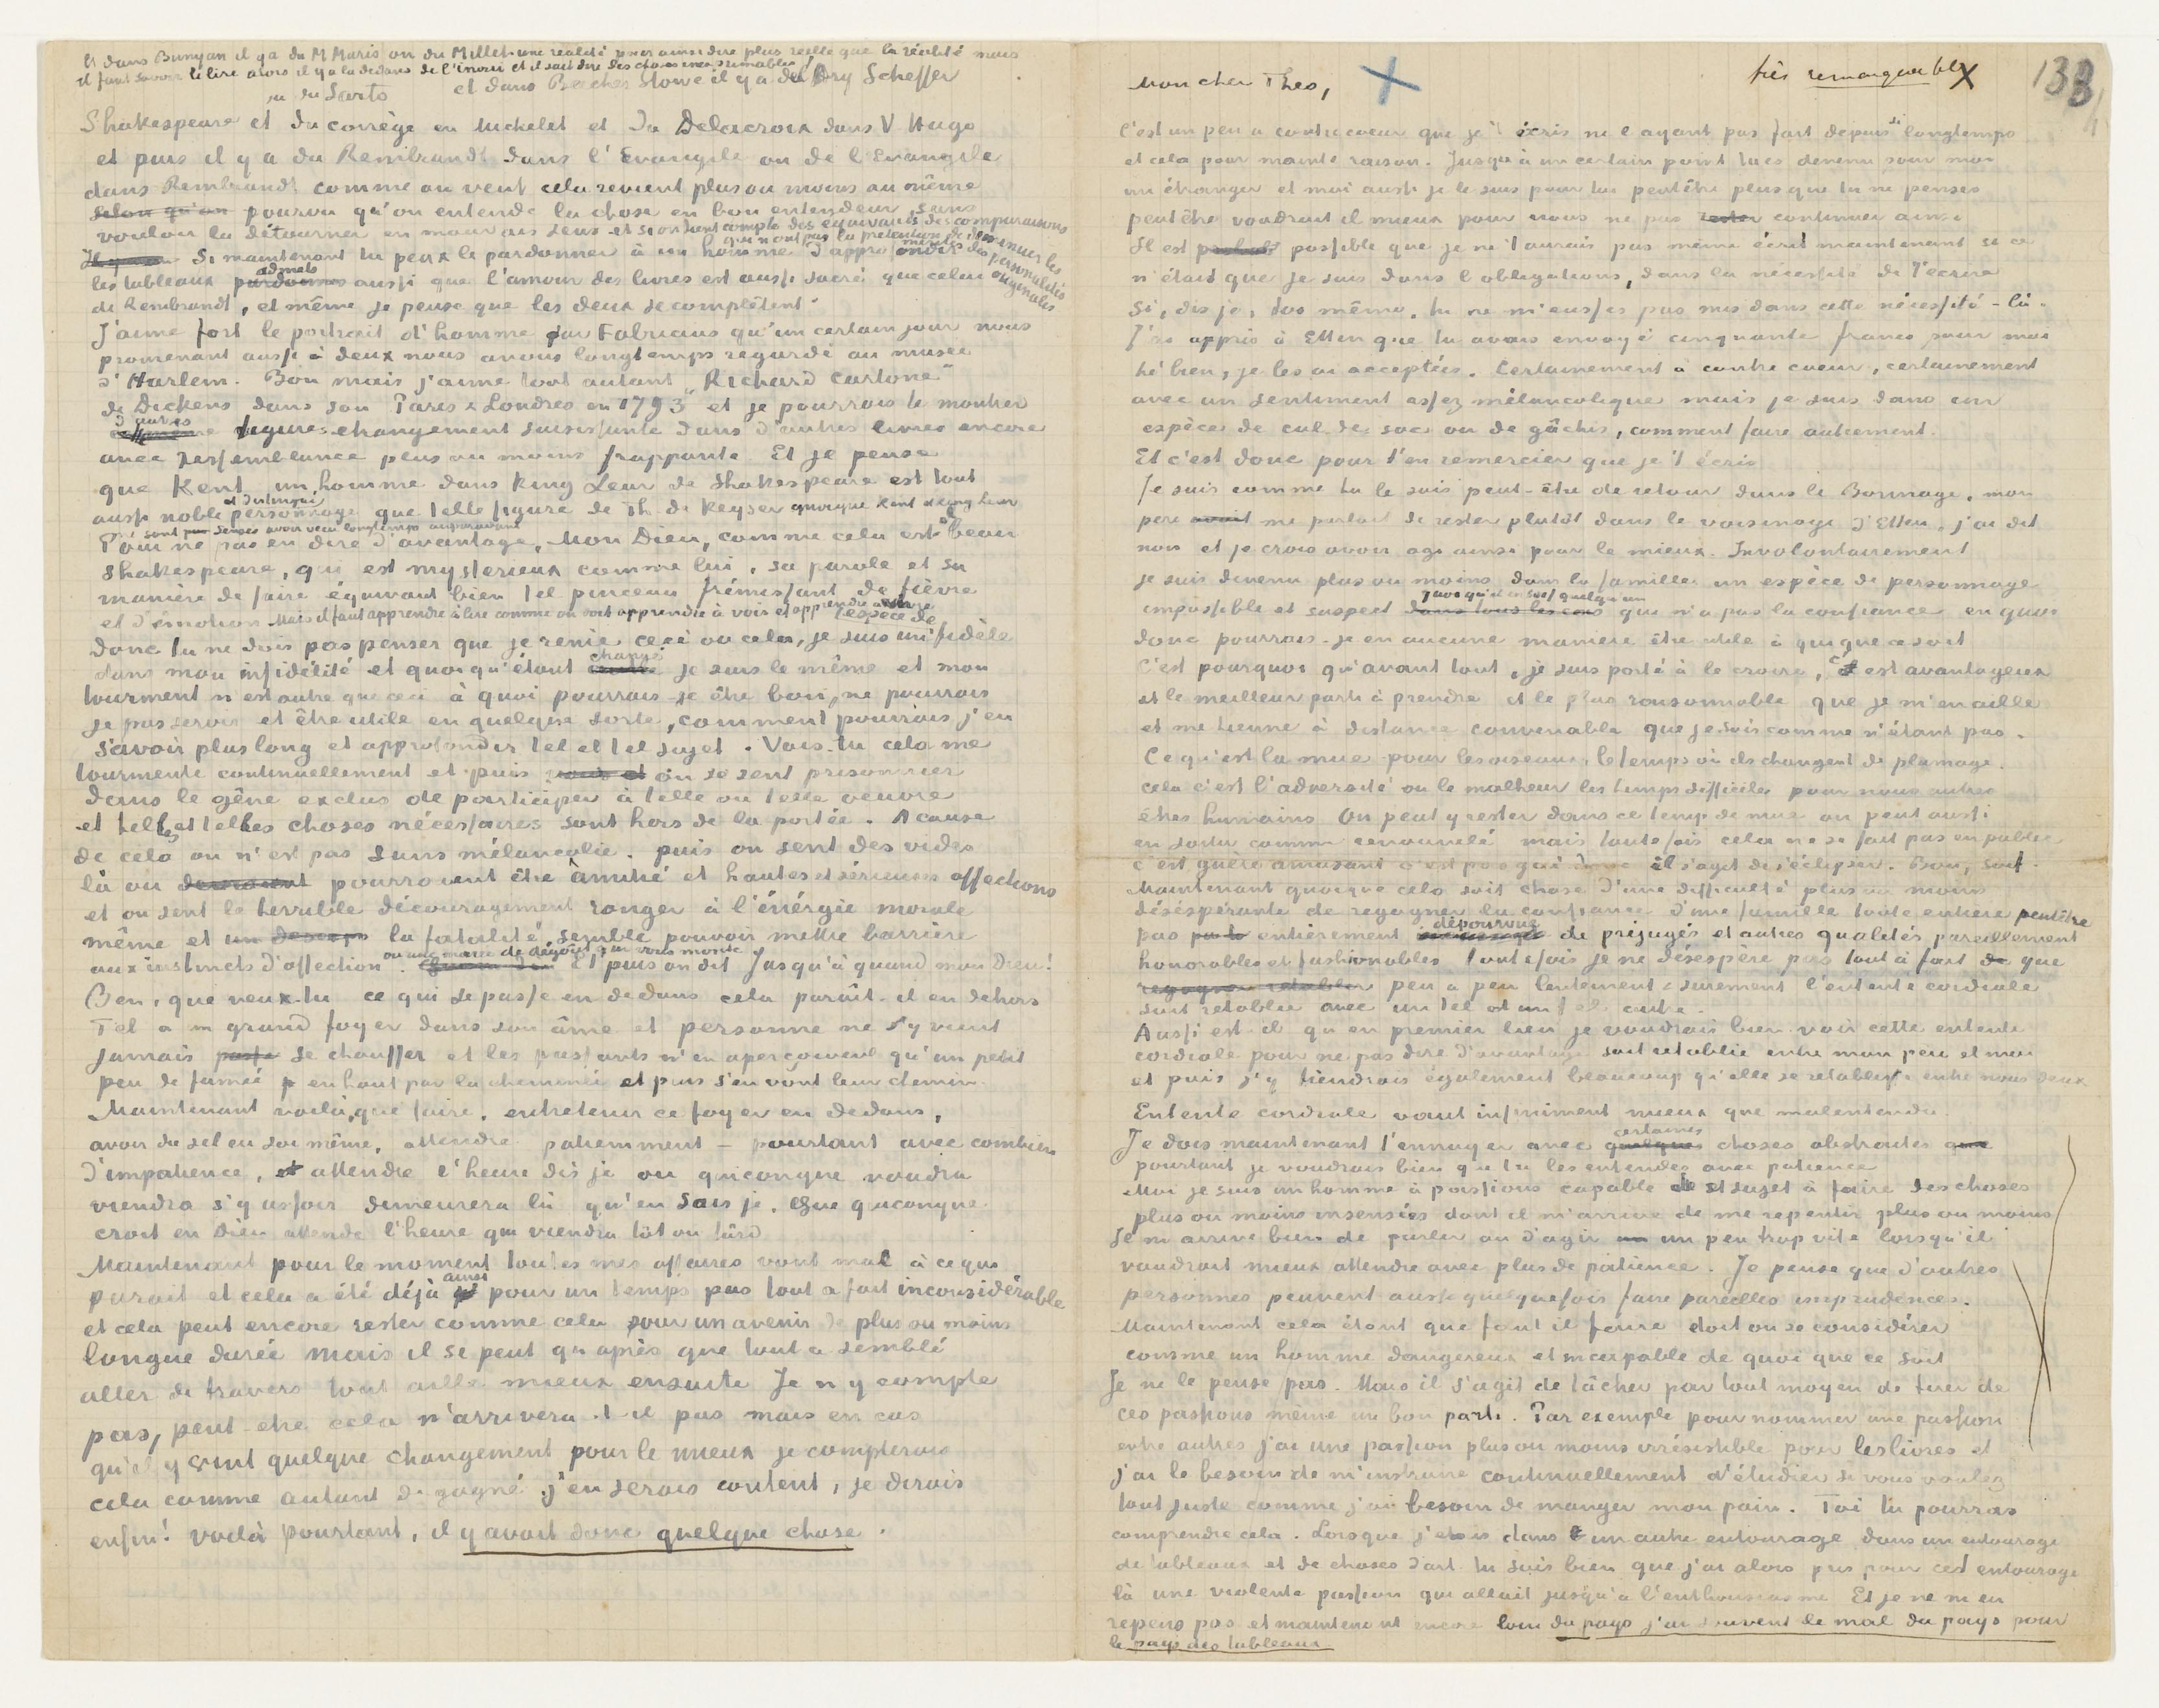 et dans Bunyan il y a du M Maris ou du Millet une réalité pour ainsi dire plus réelle que la réalité mais
il faut savoir le lire alors il y a la dedans de l'inouï et il sait dire des choses inexprimables
et dans Beecher Stowe il y a de l'Ary Scheffer
ou du Sarto
Shakespeare et du corrège en Michelet et du Delacroix dans V Hugo
et puis il y a du Rembrandt dans l'Evangile ou de l'Evangile
dans Rembrandt comme on veut cela revient plus ou moins au même
selon qu'on pourvu qu'on entende la chose en bon entendeur sans
vouloir la détourner en mauvais sens et si on tient compte des équivalents des comparaisons
qui n'ont pas la prétention de diminuer les
mérites des personnalités
originales
Si maintenant tu peux le pardonner à un homme d'approfondir
les tableaux pardonnes admets aussi que l'amour des livres est aussi sacré que celui
de Rembrandt, et même je pense que les deux se complètent.
J'aime fort le portrait d'homme par Fabricius qu'un certain jour nous
promenant aussi à deux nous avons longtemps regardé au musée
d'Harlem. Bon mais j'aime tout autant „Richard Cartone"
de Dickens dans son Paris & Londres en 1793" et je pourrais te montrer
d'autres figures etrangement saisissante dans d'autres livres encore
avec ressemblance plus ou moins frappante. Et je pense
que Kent un homme dans King Lear de Shakespeare est tout
aussi noble et distingué personnage que telle figure de Th. de Keyser quoique Kent et King Lear
sont sensés avoir vécu longtemps auparavant
Pour ne pas en dire d'avantage, Mon Dieu, comme cela est beau
Shakespeare, qui est mysterieux comme lui, sa parole et sa
manière de faire équivaut bien tel pinceau frémissant de fièvre
et d'émotion Mais il faut apprendre à lire comme on doit apprendre à voir et apprendre à vivre
donc tu ne dois pas penser que je renie ceci ou cela, je suis une espèce de fidèle
dans mon infidélité et quoiqu'étant changé je suis le même et mon
tourment n'est autre que ceci à quoi pourrais-je être bon, ne pourrais
je pas servir et être utile en quelque sorte, comment pourrais j'en
savoir plus long et approfondir tel et tel sujet. Vois-tu cela me
tourmente continuellement et puis on se sent prisonnier
dans le gêne exclus de participer à telle ou telle oeuvre
et telles et telles choses nécessaires sont hors de la portée. A cause
de cela on n'est pas sans mélancolie. puis on sent des vides
là ou devraient pourraient être amitié et hautes et sérieuses affections
et on sent le terrible découragement ronger à l'énérgie morale
même et la fatalité semble pouvoir mettre barrière
aux instincts d'affection. ou une marée de dégoût qui vous monte Et puis on dit Jusqu'à quand mon Dieu!
Ben, que veux-tu ce qui se passe en dedans cela paraît-il en dehors
Tel a un grand foyer dans son âme et personne ne s'y vient
jamais se chauffer et les passants n'en aperçoivent qu'un petit
peu de fumée en haut par la cheminée et puis s'en vont leur chemin.
Maintenant voilà, que faire, entretenir ce foyer en dedans,
avoir du sel en soi même, attendre patiemment – pourtant avec combien
d'impatience, et attendre l'heure dis je ou quiconque voudra
viendra s'y asseoir demeurera là qu'en sais je. Que quiconque
croit en Dieu attende l'heure qui viendra tôt ou târd
Maintenant pour le moment toutes mes affaires vont mal à ce qui
parait et cela a été déjà ainsi pour un temps pas tout a fait inconsidérable
et cela peut encore rester comme cela pour un avenir de plus ou moins
longue durée mais il se peut qu'après que tout a semblé
aller de travers tout aille mieux ensuite Je n'y compte
pas, peut-etre cela n'arrivera-t-il pas mais en cas
qu'il y vint quelque changement pour le mieux je compterais
cela comme autant de gagné j'en serais content, je dirais
enfin! voilà pourtant, il y avait donc quelque chose.
très remarquable X 133
Mon cher Theo,
c'est un peu a contrecoeur que je t'écris ne l'ayant pas fait depuis si longtemps
et cela pour mainte raison. Jusqu'à un certain point tu es devenu pour moi
un étranger et moi aussi je le suis pour toi peutêtre plus que tu ne penses
peutêtre voudrait il mieux pour nous ne pas rester continuer ainsi
Il est possible que je ne t'aurais pas même écrit maintenant si ce
n'était que je suis dans l'obligations, dans la nécessité de t'écrire
Si, dis je, toi même, tu ne m'eusses pas mis dans cette nécessité-là.
J'ai appris à Etten que tu avais envoyé cinquante francs pour moi
hé bien, je les ai acceptés. Certainement à contre coeur, certainement
avec un sentiment assez mélancolique mais je suis dans un
espèce de cul de sac ou de gâchis, comment faire autrement.
Et c'est donc pour t'en remercier que je t'écris
Je suis comme tu le sais peut-être de retour dans le Borinage, mon
père avait me parlait de rester plutôt dans le voisinage d'Etten, j'ai dit
non et je crois avoir agi ainsi pour le mieux. Involontairement
je suis devenu plus ou moins dans la famille un espèce de personnage
impossible et suspect dans tous les cas quoi qu'il en soit quelqu'un qui n'a pas la confiance en quoi
donc pourrais-je en aucune manière être utile à qui que ce soit
C'est pourquoi qu'avant tout, je suis porté à le croire, c'est avantageux
et le meilleur parti à prendre et le plus raisonnable que je m'en aille
et me tienne à distance convenable que je sois comme n'étant pas.
Ce qu'est la mue pour les oiseaux, le temps où ils changent de plumage.
cela c'est l'adversité ou le malheur les temps difficiles pour nous autres
êtres humains On peut y rester dans ce temps de mue on peut aussi
en sortir comme renouvelé mais toutefois cela ne se fait pas en public
c'est guère amusant c'est pas gai donc il s'agit de s'éclipser. Bon, soit.
Maintenant quoique cela soit chose d'une difficulté plus ou moins
désésperante de regagner la confiance d'une famille toute entière peutêtre
pas entièrement dépourvue de préjugés et autres qualités pareillement
honorables et fashionables toutefois je ne désespère pas tout à fait que
regagner retablir peu a peu lentement & surement l'entente cordiale
soit retablie avec un tel et un tel autre.
Aussi est-il qu'en premier lieu je voudrais bien voir cette entente
cordiale pour ne pas dire d'avantage soit retablie entre mon père et moi
et puis j'y tiendrais également beaucoup qu'elle se retablisse entre nous deux
Entente cordiale vaut infiniment mieux que malentendu.
Je dois maintenant t'ennuyer avec quelques certaines choses abstraites
pourtant je voudrais bien que tu les entendes avec patience
Moi je suis un homme à passions capable de et sujet à faire des choses
plus ou moins insensées dont il m'arrive de me repentir plus ou moins
Il m'arrive bien de parler ou d'agir un peu trop vite lorsqu'il
vaudrait mieux attendre avec plus de patience. Je pense que d'autres
personnes peuvent aussi quelquefois faire pareilles imprudences.
Maintenant cela étant que faut il faire doit on se considérer
comme un homme dangereux et incapable de quoi que ce soit
Je ne le pense pas. Mais il s'agit de tâcher par tout moyen de tirer de
ces passions même un bon parti. Par exemple pour nommer une passion
entre autres j'ai une passion plus ou moins irrésistible pour les livres et
j'ai le besoin de m'instruire continuellement d'étudier si vous voulez
tout juste comme j'ai besoin de manger mon pain. Toi tu pourras
comprendre cela. Lorsque j'etais dans un autre entourage dans un entourage
de tableaux et de choses d'art tu sais bien que j'ai alors pris pour cet entourage
là une violente passion qui allait jusqu'à l'enthousiasme. Et je ne m'en
repens pas et maintenant encore loin du pays j'ai souvent le mal du pays pour
le pays des tableaux